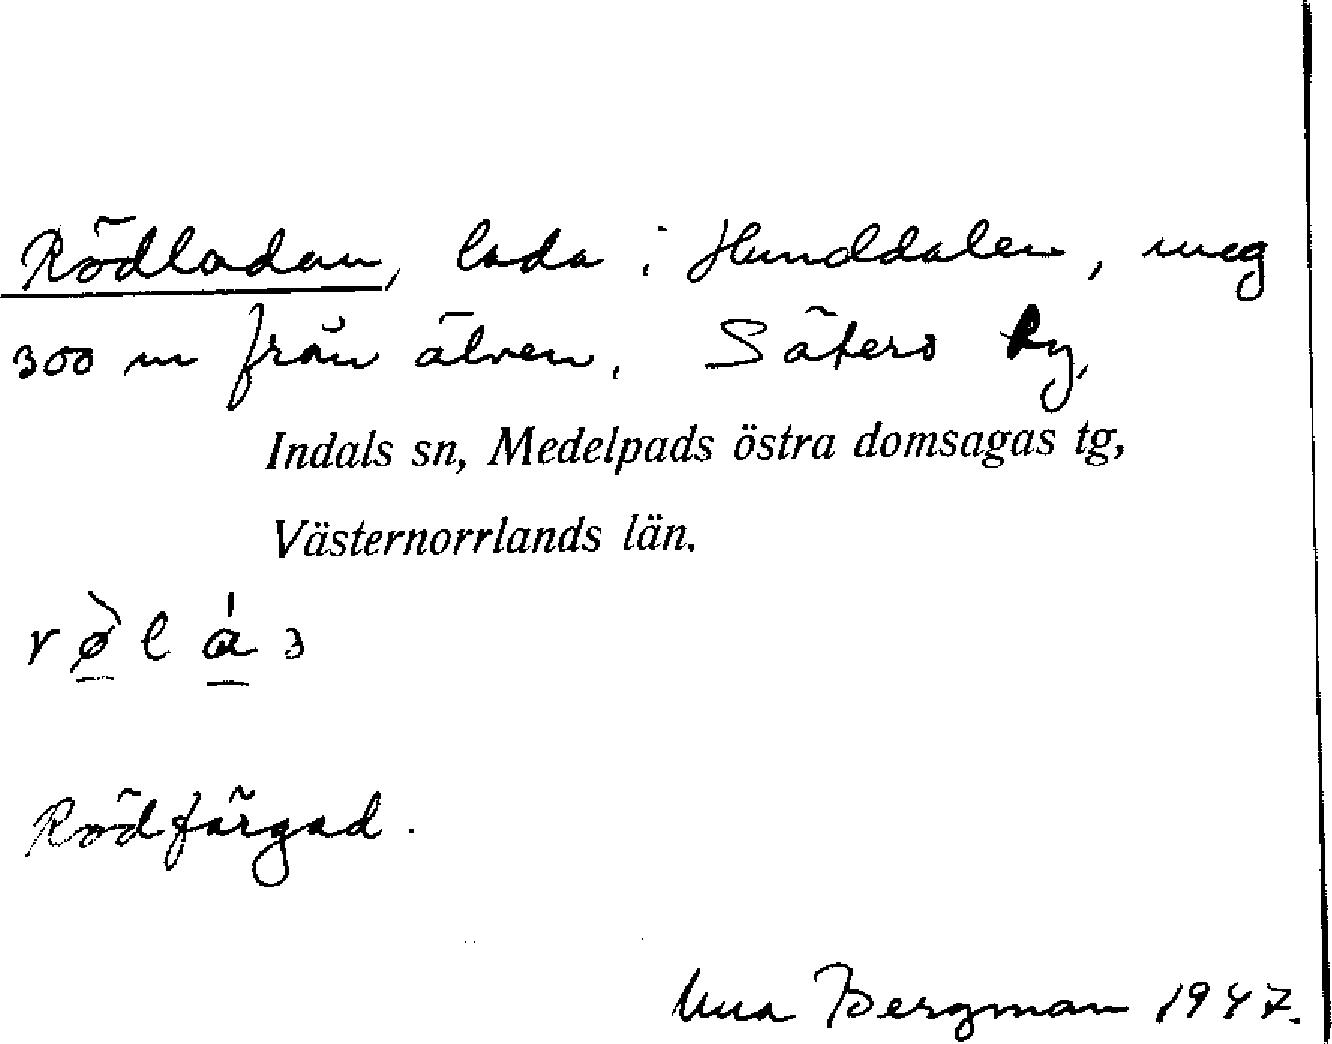 Rödladan, lada i Hunddalen, ung
300 m från älven. Säters by,
Indals sn, Medelpads östra domsagas tg,
Västernorrlands län.
Rödfärgad.
Una Bergman 1947.